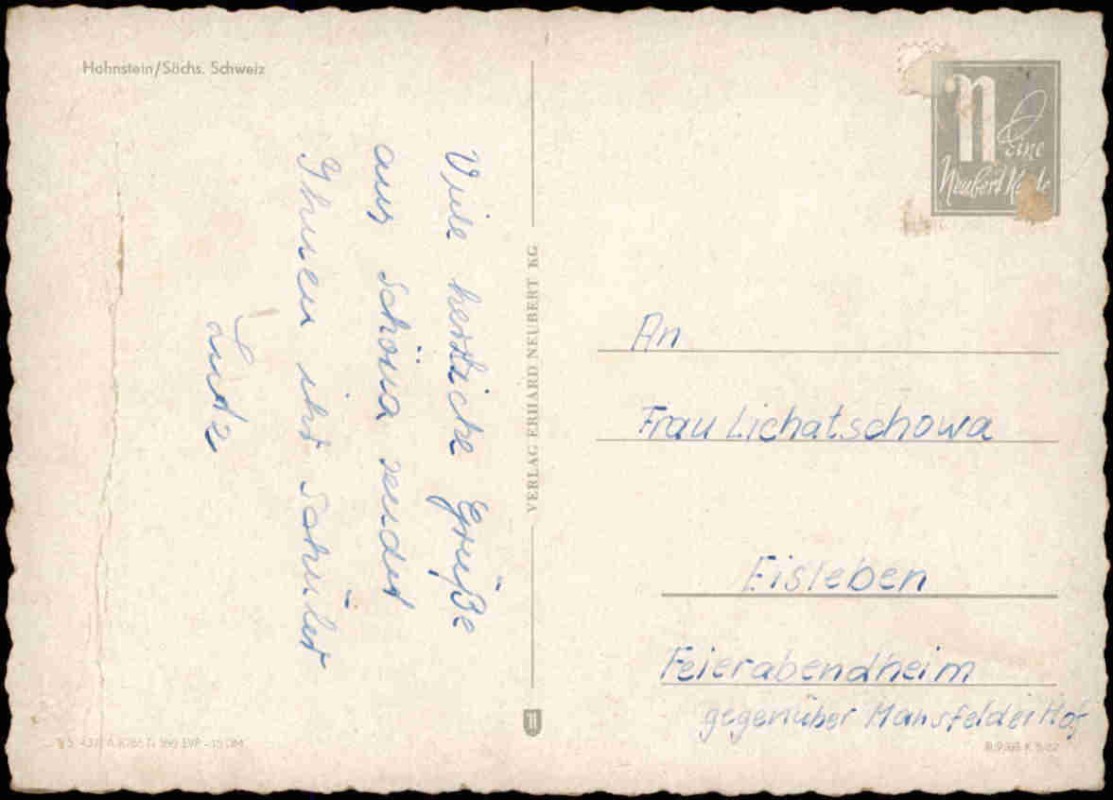 Hohnstein/Sächs. Schweiz
Viele herzliche Grüße
aus Schöna sendet
Ihnen ihr Schüler
Lutz
VERLAG ERHARD NEUBERT KG
Eine
Neubert Karte
An
Frau Lichatschowa
Eisleben
Feierabendheim
gegenüber Mansfelder Hof